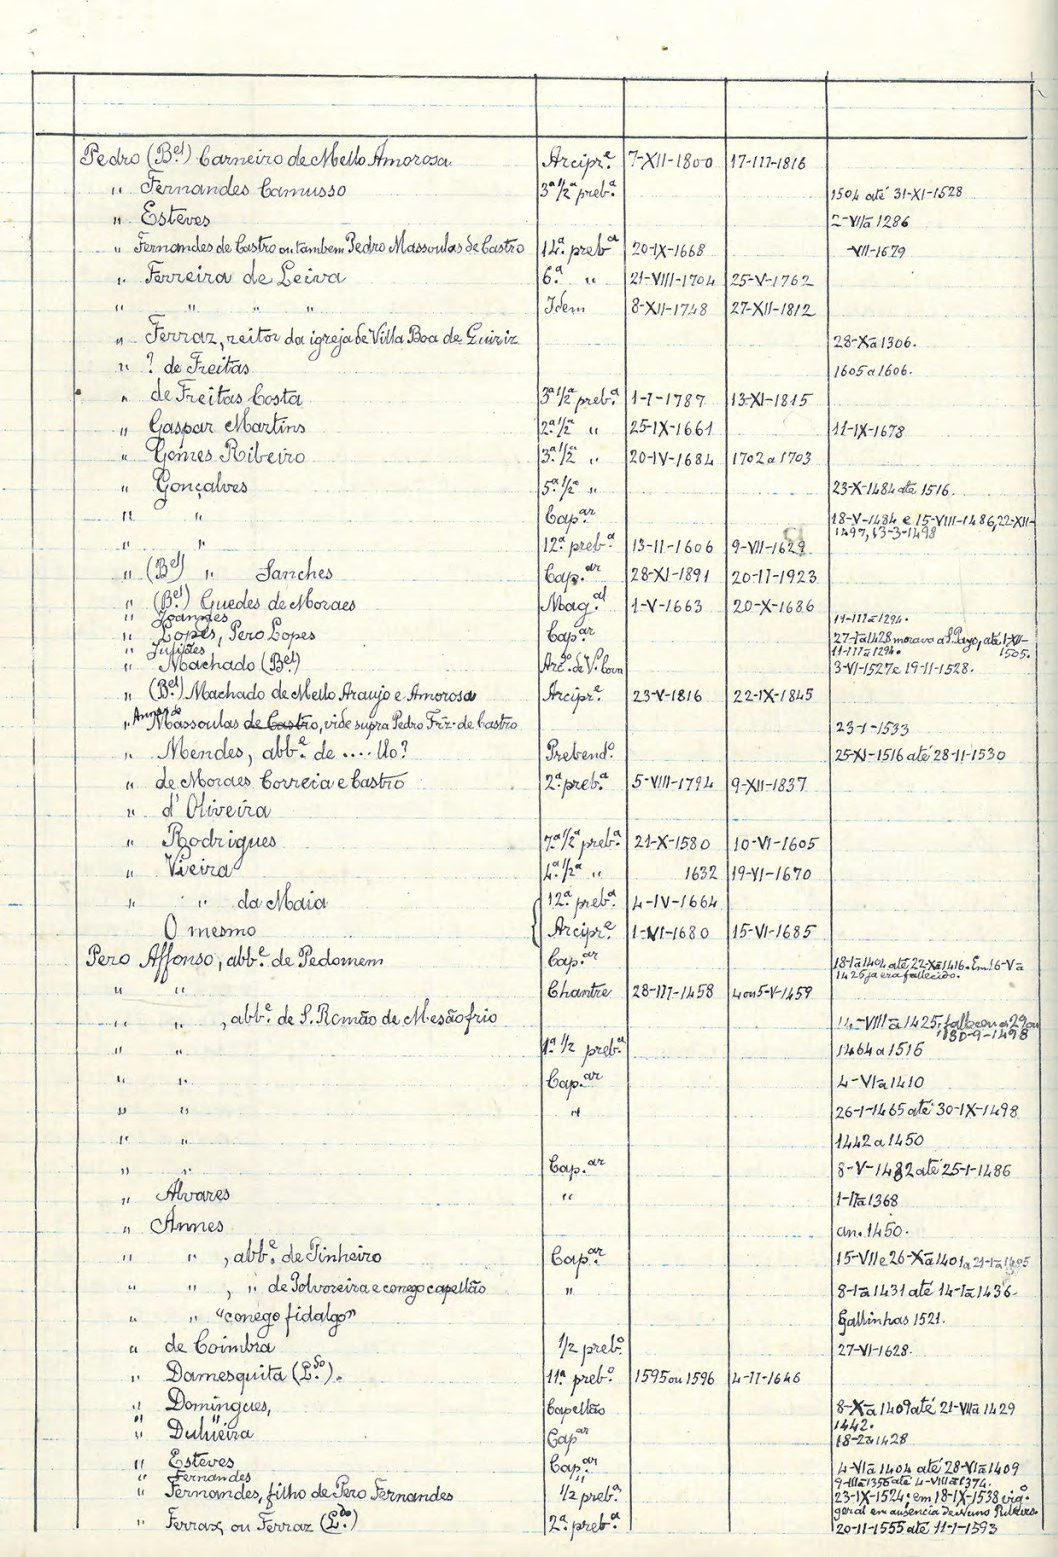 Pedro (B.el) Carneiro de Mello Amorosa Arcipr.e 7-XII-1800 17-III-1816
" Fernandes Camusso 3ª 1/2ª preb.ª 1504 até 31-XI-1528
" Esteves 2-VIIª 1286
" Fernandes de Castro ou tambem Pedro Massoulas de Castro 14ª preb.ª 20-IX-1668 -VII-1679
" Ferreira de Leiva 6.ª " 21-VIII-1704 25-V-1762
" " " " Idem 8-XII-1748 27-XII-1812
" Ferraz, reitor da igreja de Villa Boa de Quiriz 28-Xª 1306.
" ? de Freitas 1605 a 1606.
" de Freitas Costa 3ª 1/2ª preb.ª 1-I-1787 13-XI-1815
" Gaspar Martins 2ª 1/2ª " 25-IX-1661 11-IX-1678
" Gomes Ribeiro 3ª 1/2ª " 20-IV-1684 1702 a 1703
" Gonçalves 5ª 1/2ª " 23-X-1484 até 1516.
" " Cap.ar 18-V-1484 e 15-VIII-1486, 22-XII-
1497, 13-3-1498
" " 12ª preb.ª 13-II-1606 9-VII-1629
" (B.el) " Sanches Cap.ar 28-XI-1891 20-II-1923
" (B.el) Guedes de Moraes Mag.al 1-V-1663 20-X-1686
" Joannes 11-IIIª 1294.
" Lopes, Pero Lopes Cap.ar 27-Iª 1428 morava a S. Payo, até 1-XII-
1505.
" 11-IIIª 1294.
" Machado (B.el) Arc.º de V.ª Cova 3-VI-1527 e 19-II-1528.
" (B.el) Machado de Mello Araujo e Amorosa Arcipr.e 23-V-1816 22-IX-1845
" Massoulas de Castro, vide supra Pedro Frz. de Castro 23-1-1533
" Mendes, abb.e de .... Uo? Prebend.º 25-XI-1516 até 28-II-1530
" de Moraes Correia e Castro 2ª preb.ª 5-VIII-1794 9-XII-1837
" d'Oliveira
" Rodrigues 7ª 1/2ª preb.ª 21-X-1580 10-VI-1605
" Vieira 4ª 1/2ª " 1632 19-VI-1670
" " da Maia 12ª preb.ª 4-IV-1664
O mesmo Arcipr.e 1-VI-1680 15-VI-1685
Pero Affonso, abb.e de Pedomem Cap.ar 18-Iª 1404 até 22-Xª 1416. Em 16-Vª
1425 ja era fallecido.
" " Chantre 28-III-1458 4 ou 5-V-1459
" " , abb.e de S. Romão de Mesãofrio 14-VIIIª 1425, falleceu a 29 ou
30-9-1498
" " 1ª 1/2 preb.ª 1464 a 1516
" " Cap.ar 4-VIª 1410
" " " 26-1-1465 até 30-IX-1498
" " 1442 a 1450
" " Cap.ar 8-V-1482 até 25-1-1486
" Alvares " 1-IIª 1368
" Annes an. 1450.
" " , abb.e de Pinheiro Cap.ar 15-VII e 26-Xª 1401 a 21-Iª 1405
" " , " de Polvoreira e conego capellão " 8-Iª 1431 até 14-Iª 1436.
" " "conego fidalgo" Gallinhas 1521.
" de Coimbra 1/2 preb.º 27-VI-1628.
" Damesquita (L.do). 11ª preb.º 1595 ou 1596 4-II-1646
" Domingues, Capellão 8-Xª 1409 até 21-VIIª 1429
" " 1442.
" Dulueira Cap.ar 18-2ª 1428
" Esteves Cap.ar 4-VIª 1404 até 28-VIª 1409
" Fernandes " 9-IIIª 1356 até 4-VIIIª 1374.
" Fernandes, filho de Pero Fernandes 1/2 preb.ª 23-IX-1524; em 18-IX-1538 vig.º
geral em ausencia de Nuno
" Ferrax, ou Ferraz (L.do) 2ª preb.ª 20-II-1555 até 11-1-1593